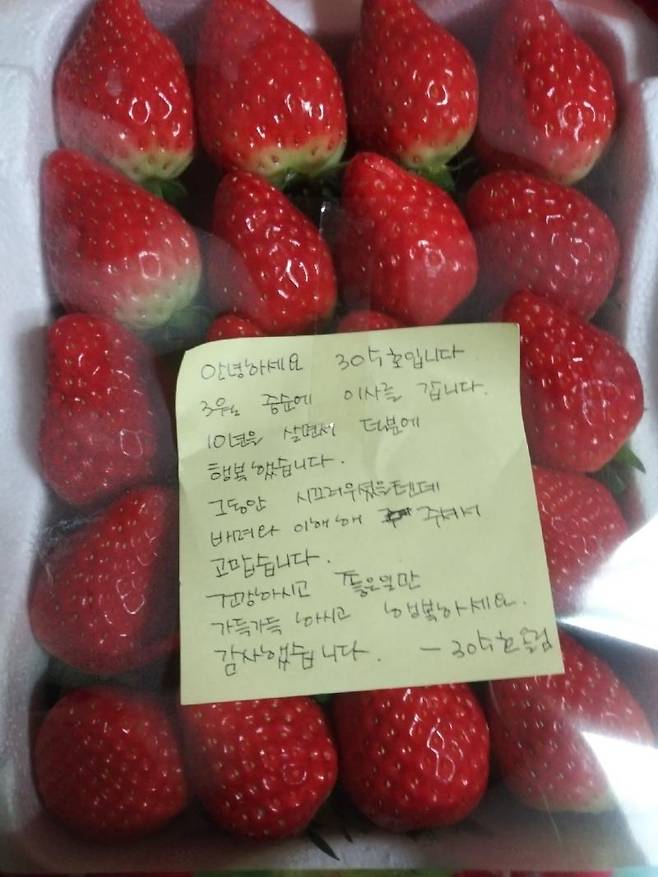 안녕하세요 305호입니다.
3월 중순에 이사를 갑니다.
10년을 살면서 덕분에
행복했습니다.
그동안 시끄러우셨을텐데
배려와 이해해 주셔서
고맙습니다.
건강하시고 좋은일만
가득가득 하시고 행복하세요.
감사했습니다. - 305호올림